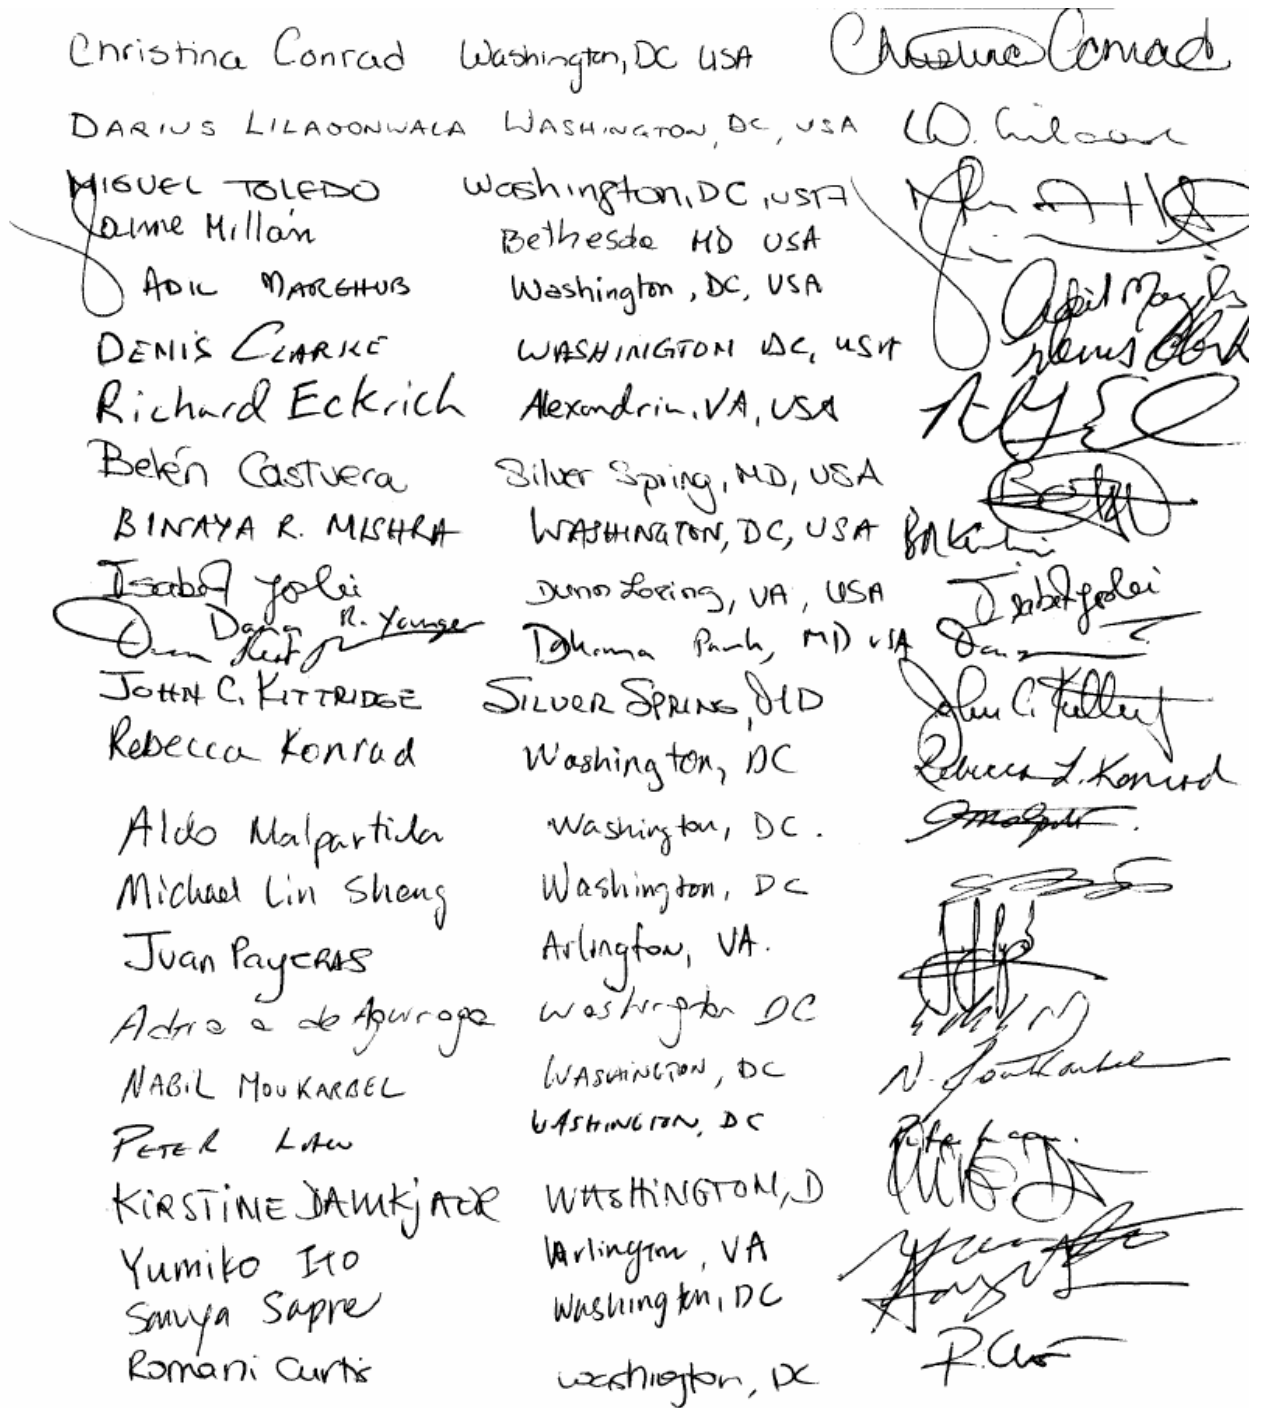 Christina Conrad Washington, DC USA Christina Conrad
DARIUS LILAOONWALA WASHINGTON, DC, USA D.
MIGUEL TOLEDO Washington, DC, USA
Jaime Millán Bethesda MD USA
ADIL MARGHUB Washington, DC, USA Adil
DENIS CLARKE WASHINGTON DC, USA Denis Clark
Richard Eckrich Alexandria, VA, USA
Belén Castuera Silver Spring, MD, USA
BINAYA R. MISHRA WASHINGTON, DC, USA
Isabel Dunn Loring, VA, USA Isabel
Dana R. Younger Park, MD USA Dana
JOHN C. KITTRIDGE SILVER SPRING, MD John C.
Rebecca Konrad Washington, DC Rebecca L. Konrad
Aldo Malpartida Washington, DC.
Michael Lin Sheng Washington, DC
Juan PAYERAS Arlington, VA.
de Washington DC
NABIL MOUKARBEL WASHINGTON, DC N. Moukarbel
PETER LAW WASHINGTON, DC
KiRSTiNE DAMKjAER WASHiNGTON, D
Yumiko Ito Arlington, VA
Sanya Sapre Washington, DC
Romani Curtis Washington, DC R.